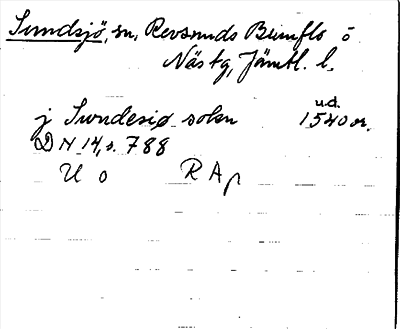 Sundsjö, sn, Revsunds Brunflo o
Näs tg, Jämtl. l.
u.d.
j Swndesiø sokn 1540 or.
DN 14, s. 788
U o RAp